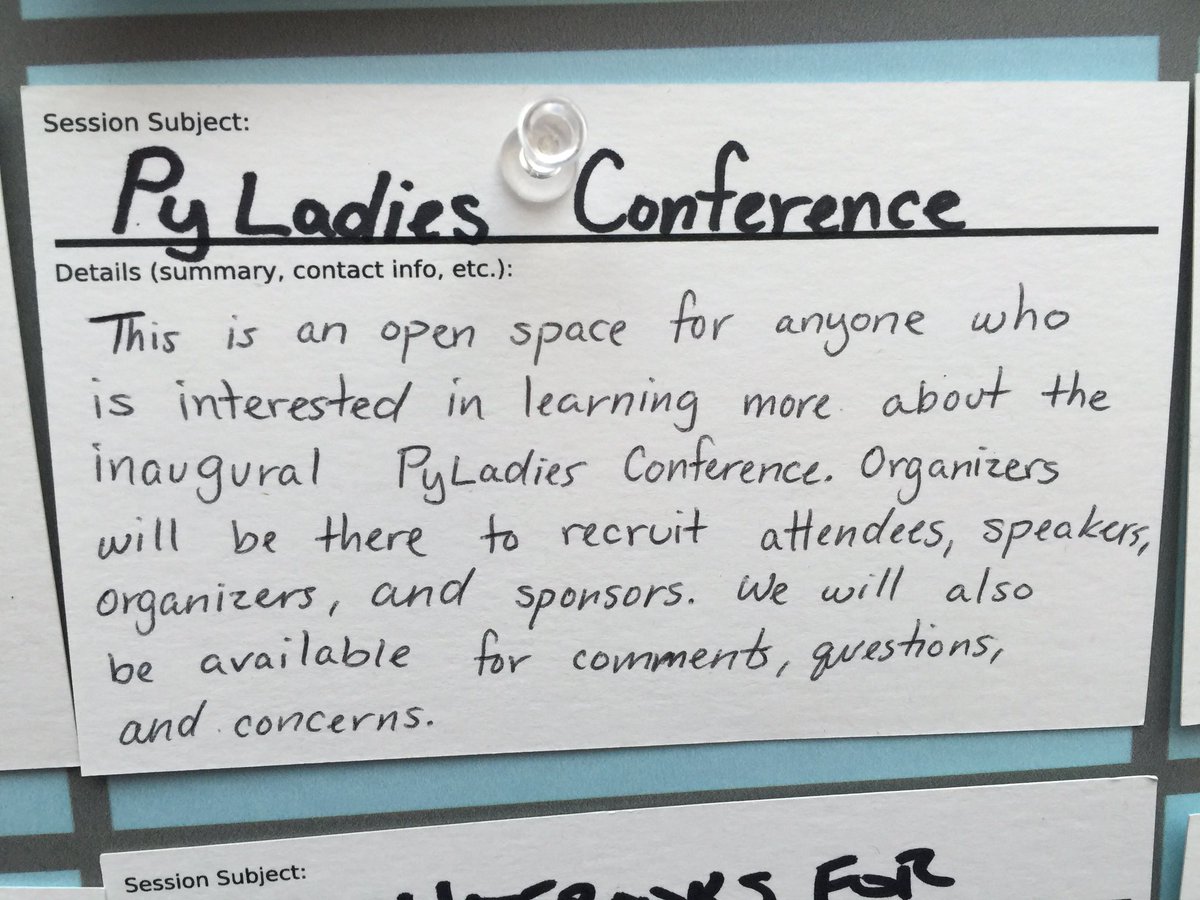 Session Subject:
PyLadies Conference
Details (summary, contact info, etc.):
This is an open space for anyone who
is interested in learning more about the
inaugural PyLadies Conference. Organizers
will be there to recruit attendees, speakers,
organizers, and sponsors. We will also
be available for comments, questions,
and concerns.
Session Subject:
FOR